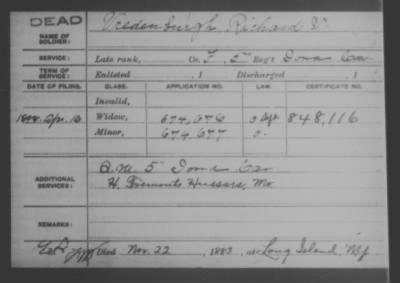 DEAD
NAME OF SOLDIER: Vredenburgh, Richard V.
SERVICE: Late rank, Co. F 5 Reg't Iowa Cav
TERM OF SERVICE: Enlisted , 1 Discharged , 1
DATE OF FILING. CLASS. APPLICATION NO. LAW. CERTIFICATE NO.
Invalid,
Apr. 16 Widow, 674,676 848,116
Minor, 674,677
ADDITIONAL SERVICES: 5" Iowa Cav
H. Fremonts Hussars, Mo.
REMARKS:
Died Nov. 22, 1883, at Long Island, N.Y.